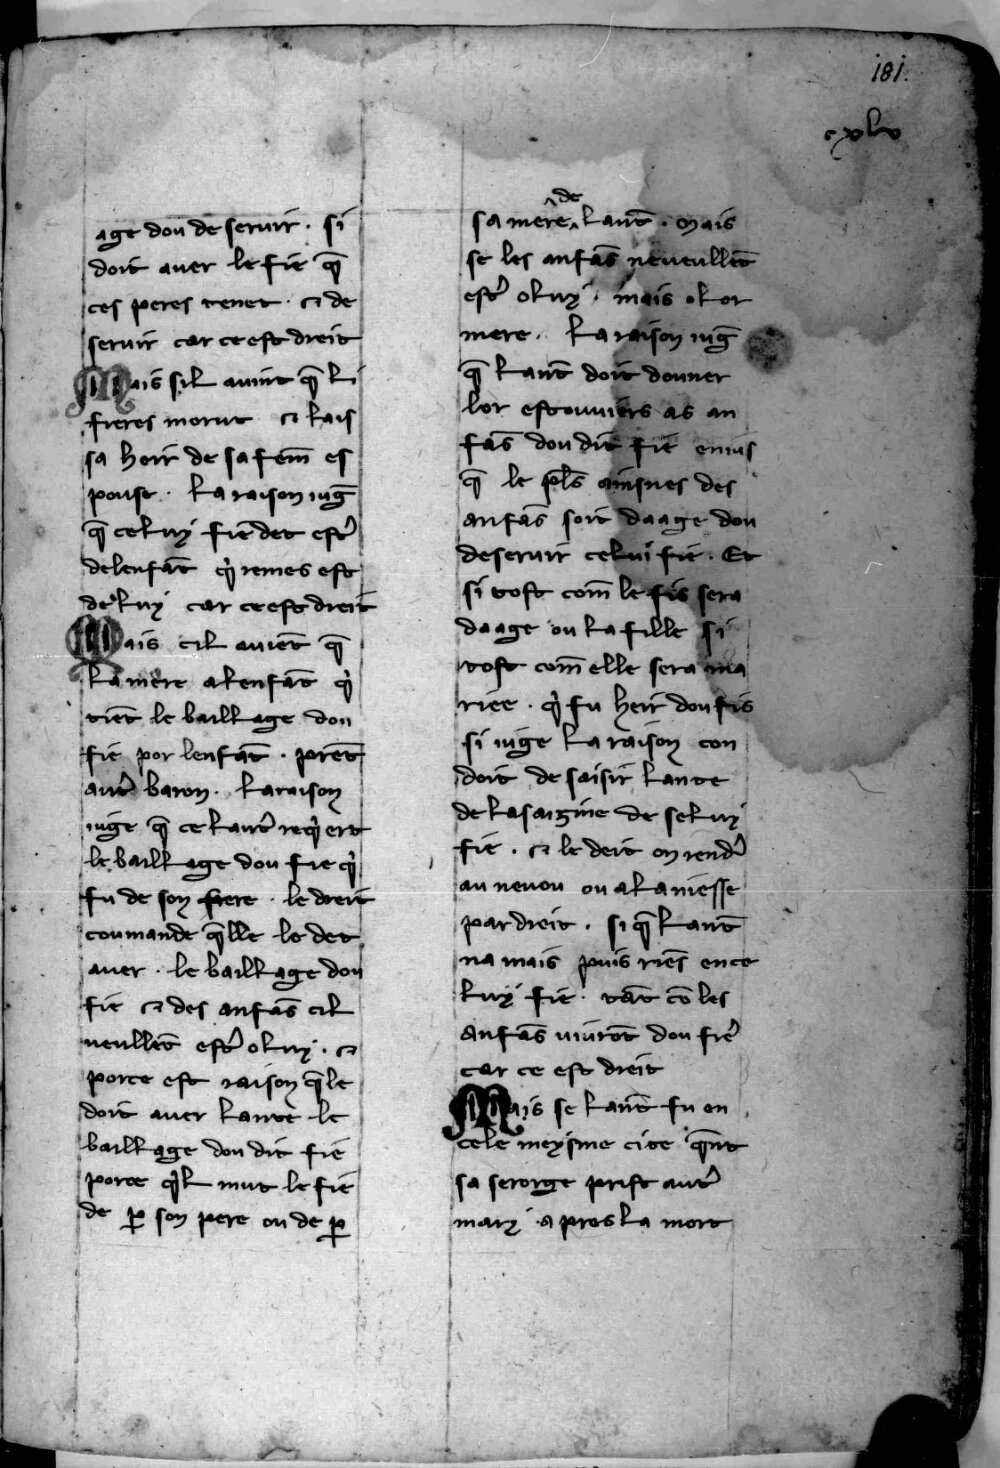 181.
cxlv
age dou de seruir . si
doit auer le fie q̄
ces peres tenet . et de
seruir car ce est dreit
Mais sil auint q̄ li
freres morut et lais
sa heir de sa fem̄ es
pouse . La raison iuḡ
q̄ celuy fie det estr̉
de lenfāt q̉ remes est
de luy car ce est dreit
Mais cil auiēt q̄
la mere a lenfāt q̉
tiēt le baillage dou
fie por lenfāt . prēt
autr̉ baron . La raison
iuge q̄ ce lautr̉ req̉ert
le baillage dou fie q̉
fu de son frere . le dreit
coumande q̄lle le det
auer . le baillage dou
fie et des anfās cil
ueullēt estr̉ o luy . et
porce est raison q̄ le
doit auer lante le
baillage dou dit fie
porce q̉l mut le fie
de ꝑ son pere ou de ꝑ
sa mere de laut̄ . Mais
se les anfās ne ueullēt
estr̉ o luy . mais o lor
mere . La raison iuḡ
q̄ laut̄ doit donner
lor estouuiers as an
fās dou dit fie enius
q̄ le pl̄s ainsnes des
anfās soit daage dou
deseruir celui fie . Et
si tost com̄ le fis sera
daage ou la fille si
tost com̄ elle sera ma
riee . q̉ fu heir dou fis
si iuge la raison con
doit desaisir lante
de la saizine de seluy
fie . et le deit on rendr̉
au neuou ou a la niesse
par dreit . si q̄ laut̄
na mais puis riēs en ce
luy fie . tāt cō les
anfās uiurōt dou frē
car ce est dreit
Mais se laut̄ fu en
cele meysme cite q̄nt
sa serorge prist autr̉
mary apres la mort